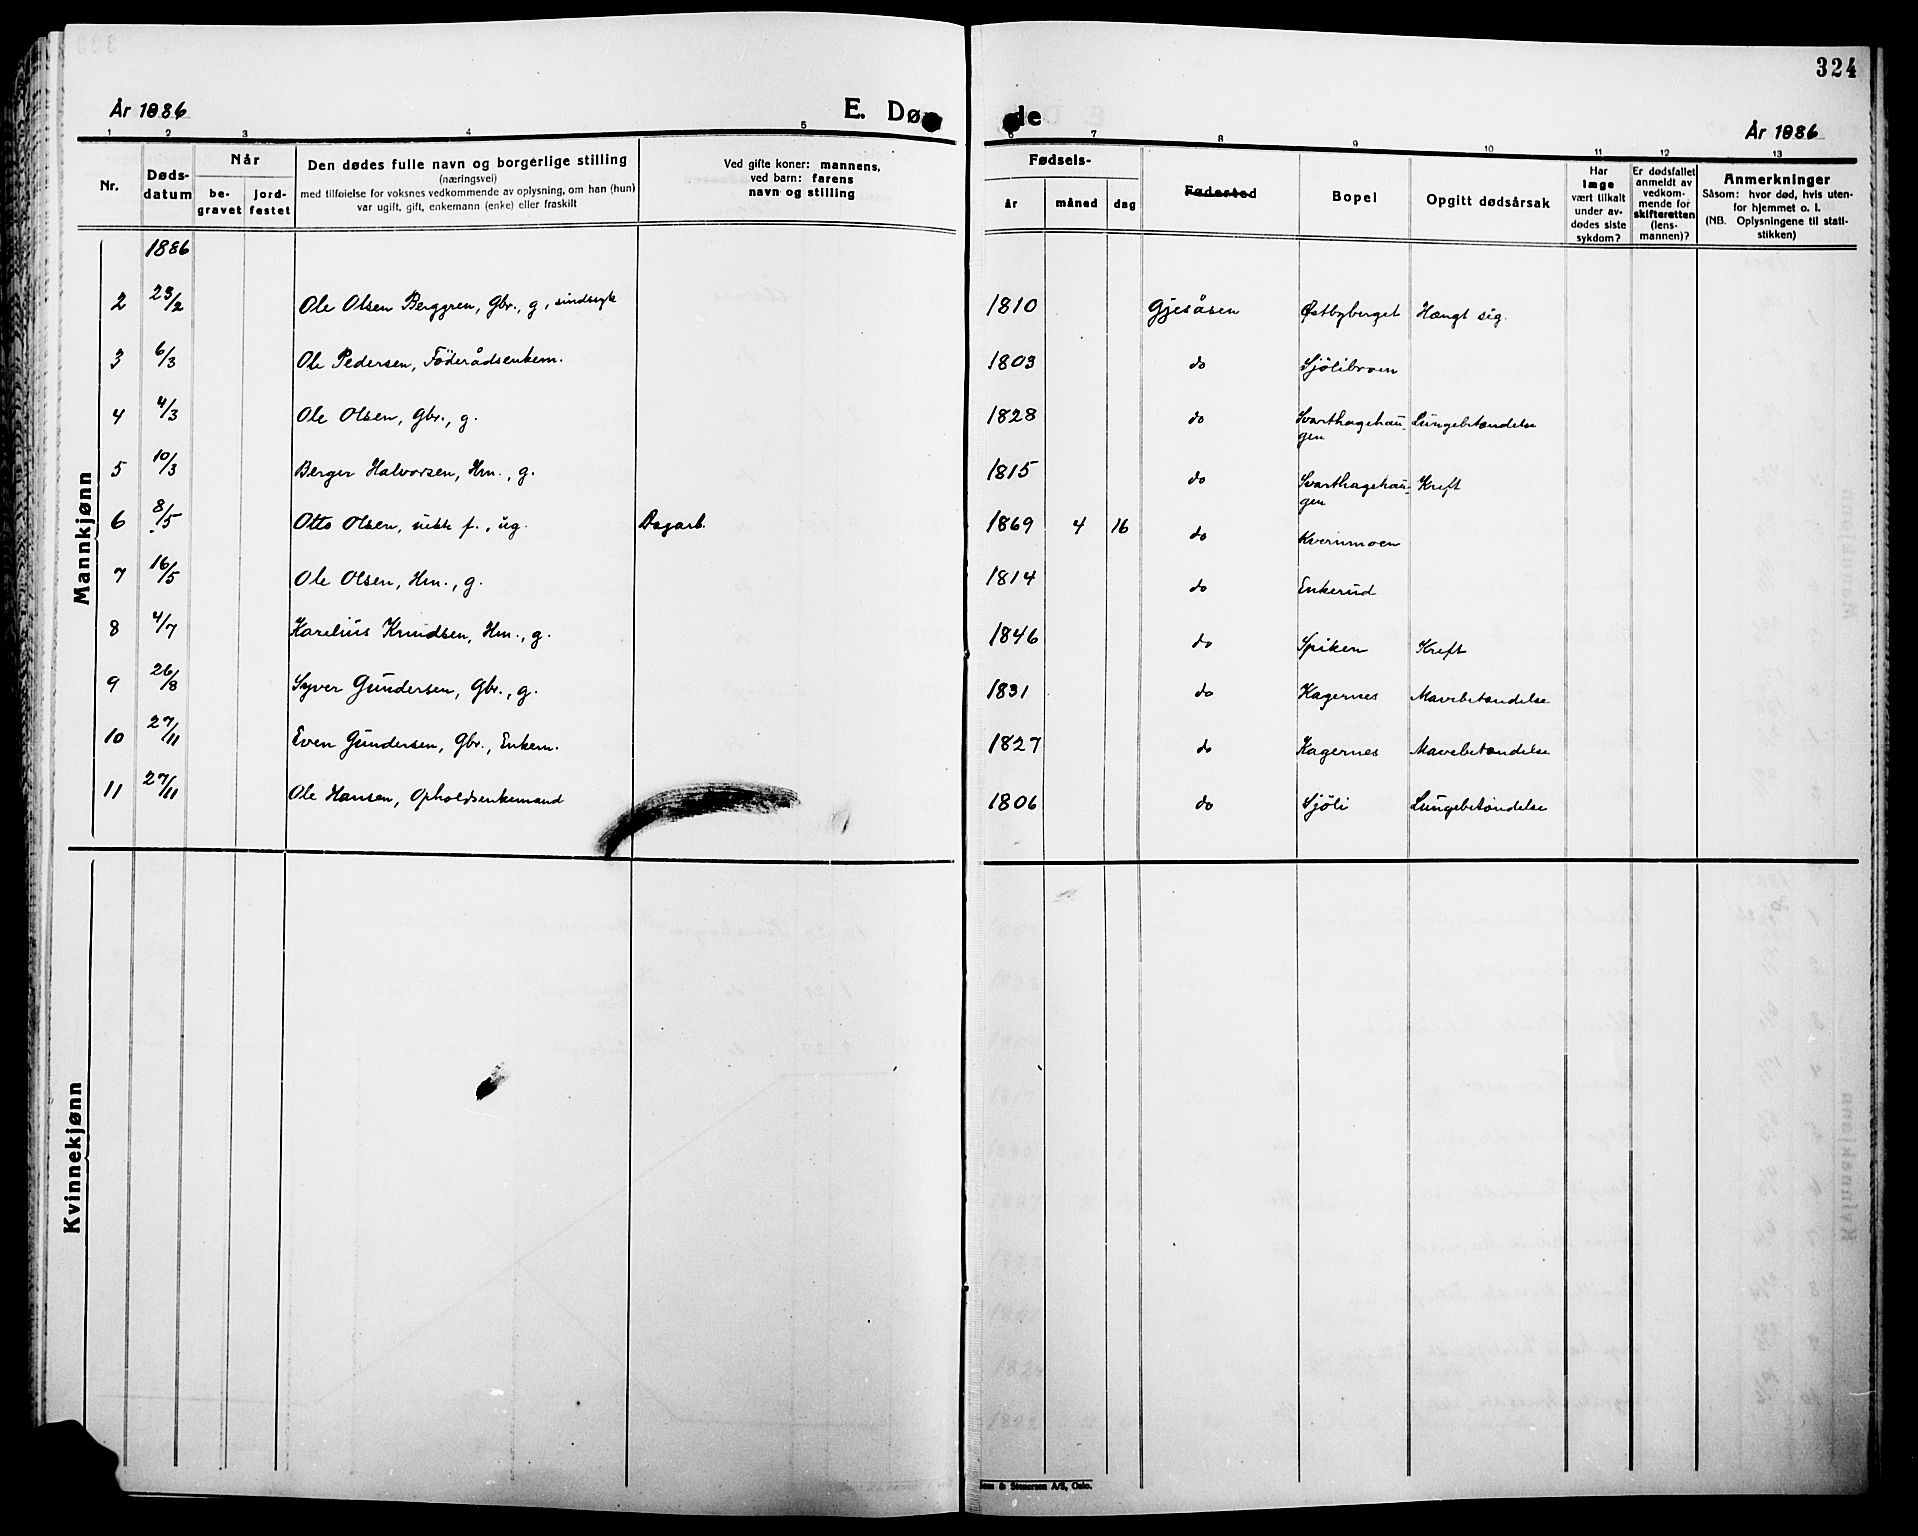 324
År 1886
E. Dø de
År 1886
1 2 3 4 5 6 7 8 9 10 11 12 13
Nr.
Døds-
datum
Når
be-
gravet
jord-
festet
Den dødes fulle navn og borgerlige stilling
(næringsvei)
med tilføielse for voksnes vedkommende av oplysning, om han (hun)
var ugift, gift, enkemann (enke) eller fraskilt
Ved gifte koner: mannens,
ved barn: farens
navn og stilling
Fødsels-
år
måned
dag
Fødested
Bopel
Opgitt dødsårsak
Har
læge
vært tilkalt
under av-
dødes siste
sykdom?
Er dødsfallet
anmeldt av
vedkom-
mende for
skifteretten
(lens-
mannen)?
Anmerkninger
Såsom: hvor død, hvis uten-
for hjemmet o. l.
(NB. Oplysningene til stati-
stikken)
Mannkjønn
1886
2 23/2 Ole Olsen Berggren, Gbr., g, sindssyk 1810 Gjesåsen Østbyberget Hængt sig.
3 6/3 Ole Pedersen, Föderådsenkem. 1803 do Sjölibroen
4 4/3 Ole Olsen, Gbr., g. 1828 do Svarthagehau- Lungebetændelse
gen
5 10/3 Berger Halvorsen, Hm., g. 1815 do Svarthagehau- Kreft
gen
6 8/5 Otto Olsen, ikke f., ug. Dagarb. 1869 4 16 do Kvernmoen
7 16/5 Ole Olsen, Hm., g. 1814 do Enkerud
8 4/7 Karelius Knudsen, Hm., g. 1846 do Spiken Kreft
9 26/8 Syver Gundersen, Gbr., g. 1831 do Kagernes Mavebetændelse
10 27/11 Even Gundersen, Gbr., Enkem. 1827 do Kagernes Mavebetændelse
11 27/11 Ole Hansen, Opholdsenkemand 1806 do Sjöli Lungebetændelse
Kvinnekjønn
& Stenersen A/S, Oslo.